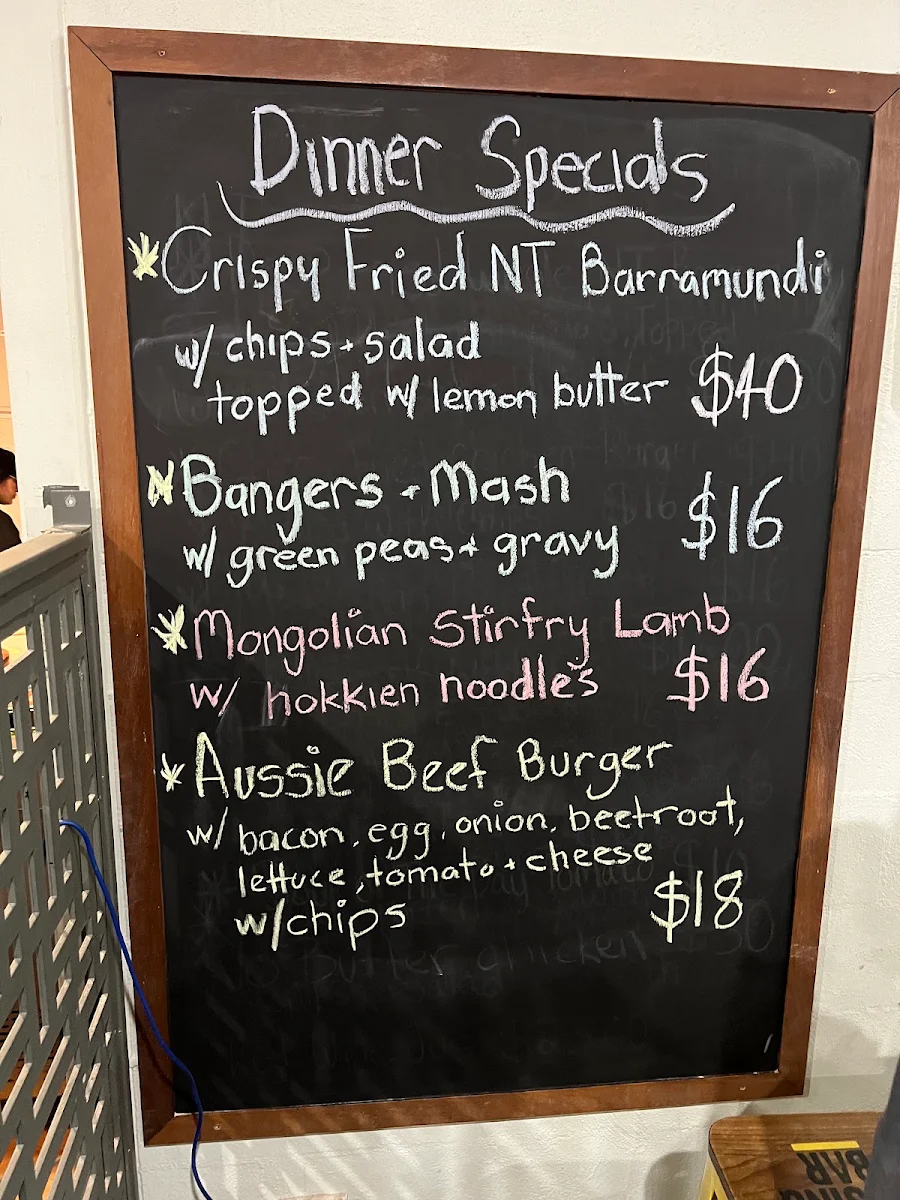 Dinner Specials
*Crispy Fried NT Barramundi
w/ chips + salad
topped w/ lemon butter $40
*Bangers + Mash
w/ green peas + gravy $16
*Mongolian Stirfry Lamb
w/ hokkien noodles $16
*Aussie Beef Burger
w/ bacon, egg, onion, beetroot,
lettuce, tomato + cheese
w/chips $18
butter chicken
BAR